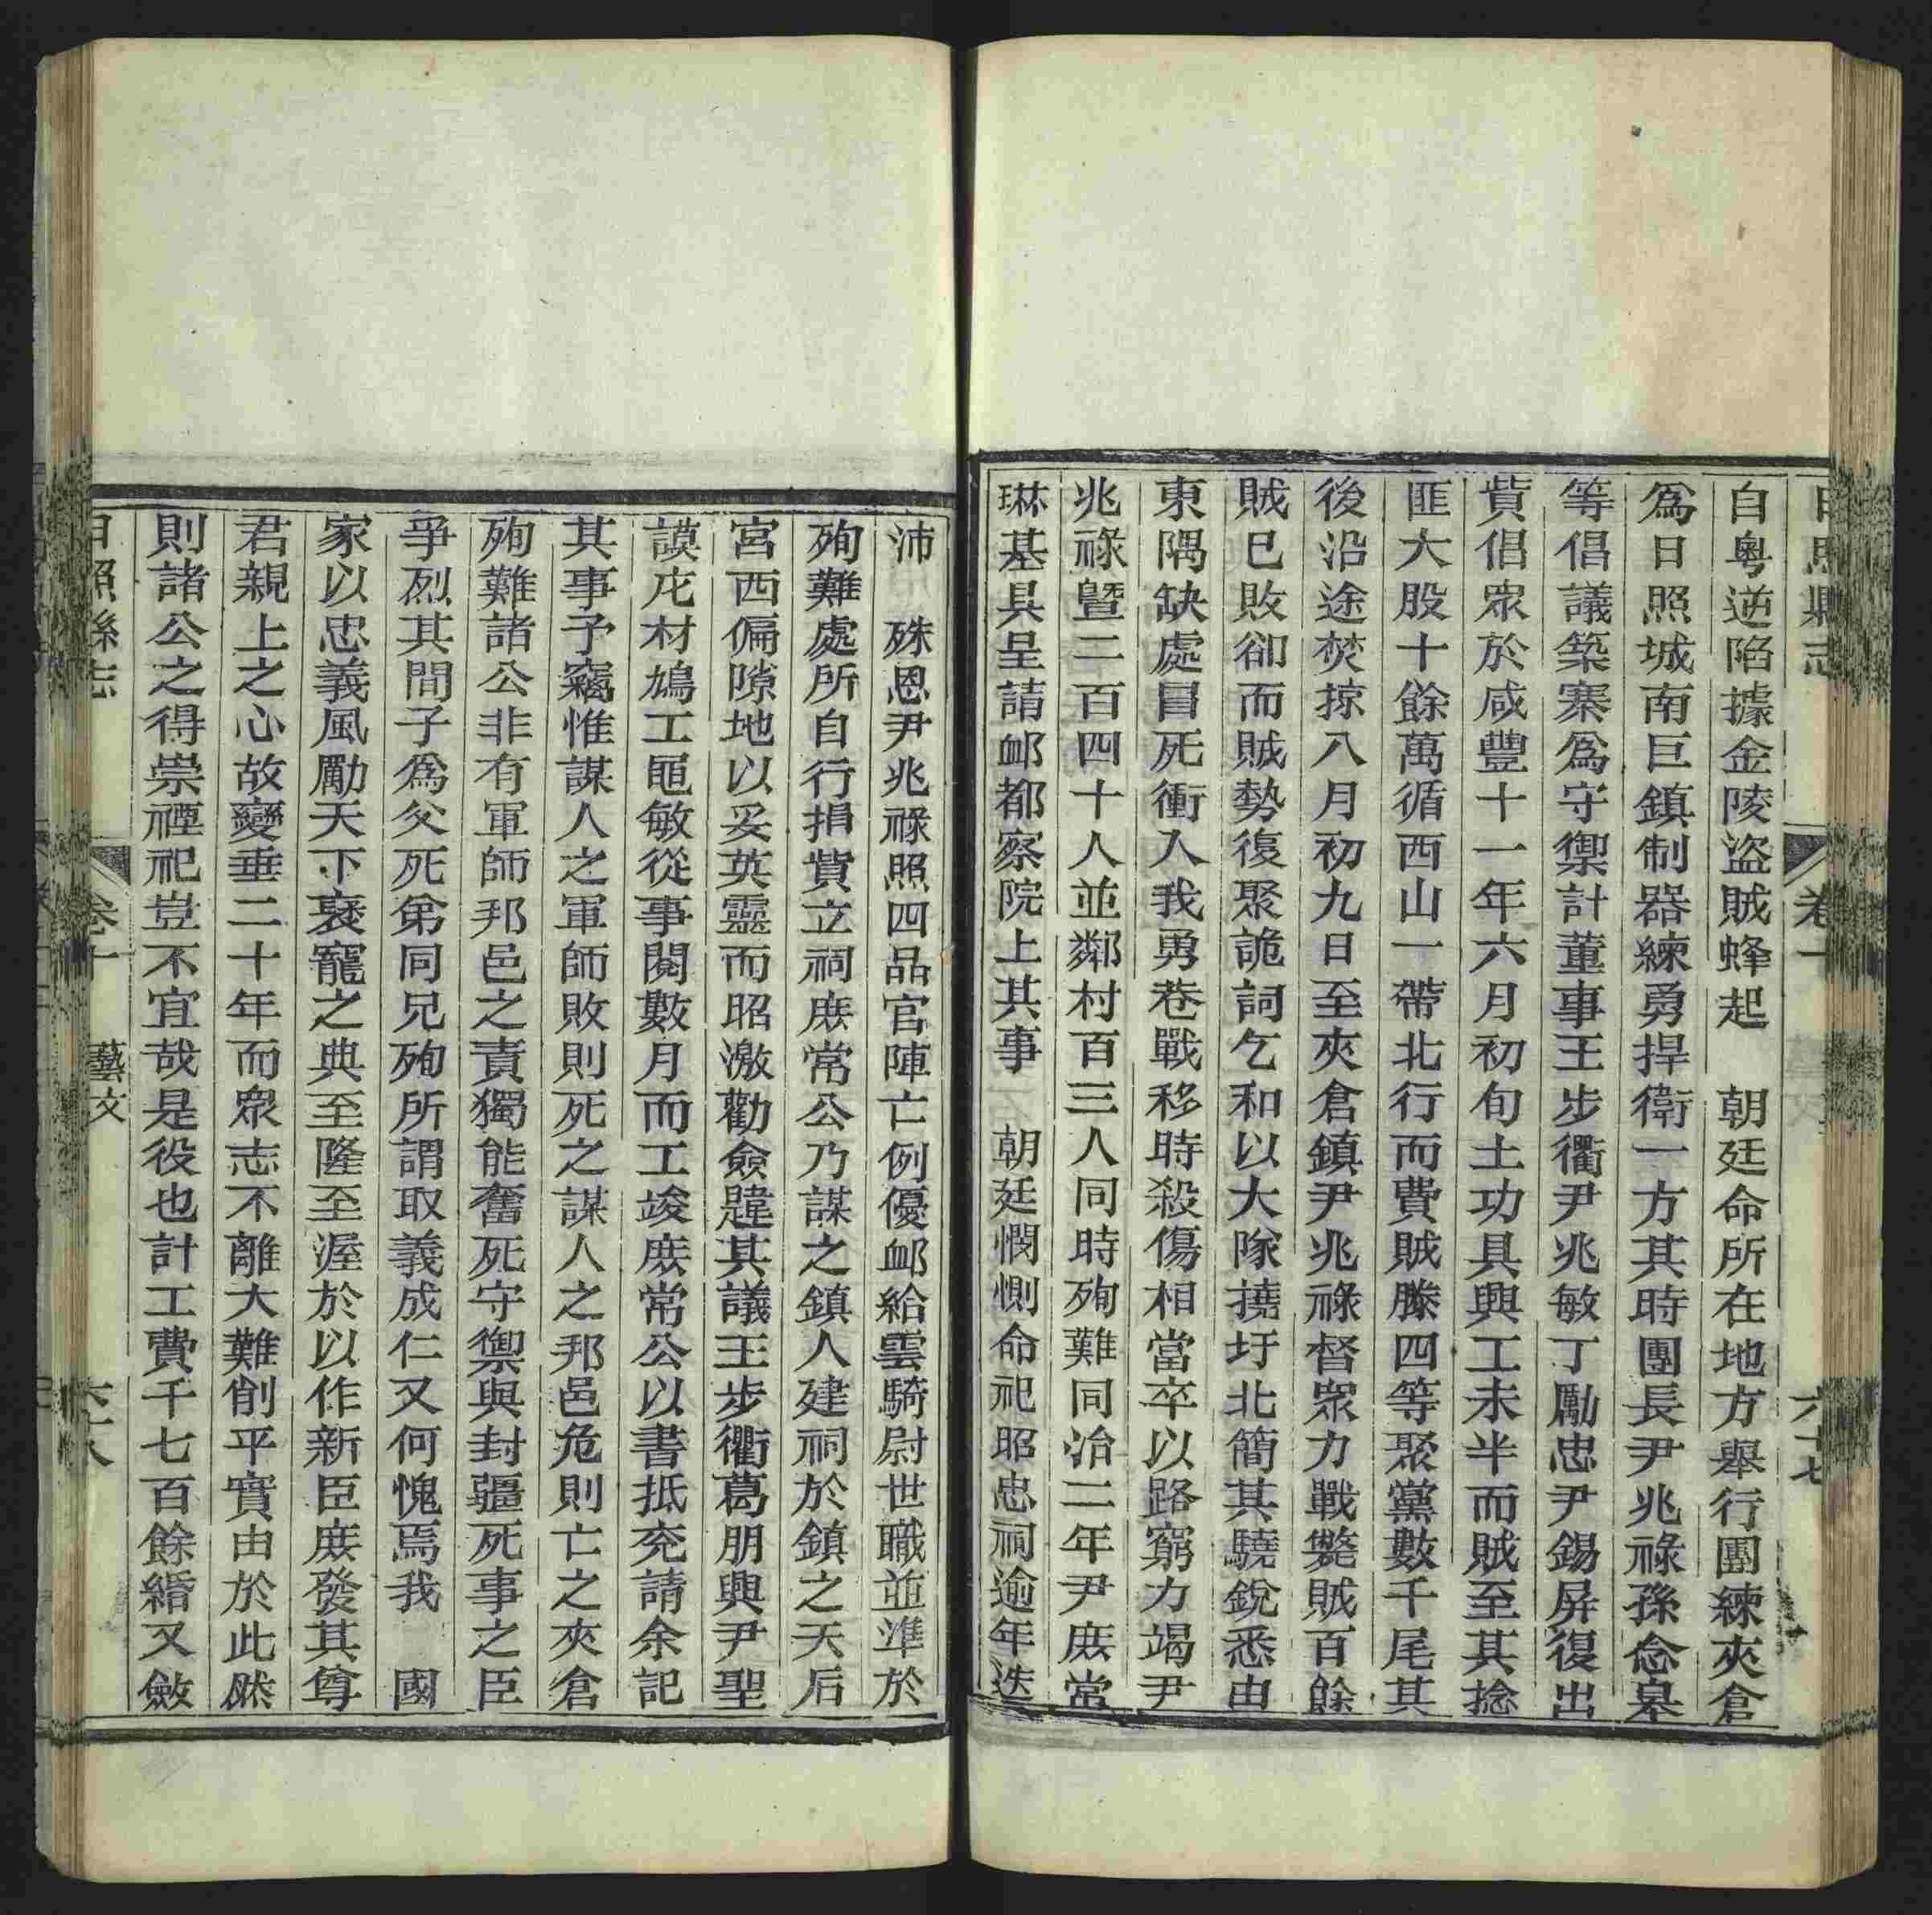 日照縣志　卷十　六十七
自粵逆陷據金陵盜賊蜂起　朝廷命所在地方舉行團練夾倉
爲日照城南巨鎮制器練勇捍衛一方其時團長尹兆祿孫念皋
等倡議築寨爲守禦計董事王步衢尹兆敏丁勵忠尹錫屏復出
貲倡眾於咸豐十一年六月初旬土功具興工未半而賊至其捻
匪大股十餘萬循西山一帶北行而費賊滕四等聚黨數千尾其
後沿途焚掠八月初九日至夾倉鎮尹兆祿督眾力戰斃賊百餘
賊已敗卻而賊勢復聚詭詞乞和以大隊撓圩北簡其驍銳悉由
東隅缺處冒死衝入我勇巷戰移時殺傷相當卒以路窮力竭尹
兆祿暨二百四十人並鄰村百三人同時殉難同治二年尹庶常
琳基具呈請卹都察院上其事　朝廷憫惻命祀昭忠祠逾年迭
沛　殊恩尹兆祿照四品官陣亡例優卹給雲騎尉世職並準於
殉難處所自行捐貲立祠庶常公乃謀之鎮人建祠於鎮之天后
宮西偏隙地以妥英靈而昭激勸僉韙其議王步衢葛朋興尹聖
謨庀材鳩工黽敏從事閱數月而工竣庶常公以書抵兖請余記
其事予竊惟謀人之軍師敗則死之謀人之邦邑危則亡之夾倉
殉難諸公非有軍師邦邑之責獨能奮死守禦與封疆死事之臣
爭烈其間子爲父死弟同兄殉所謂取義成仁又何愧焉我　國
家以忠義風勵天下襃寵之典至隆至渥於以作新臣庶發其尊
君親上之心故變垂二十年而眾志不離大難削平實由於此然
則諸公之得崇禋祀豈不宜哉是役也計工費千七百餘緡又斂
日照縣志　卷十　藝文　六十八